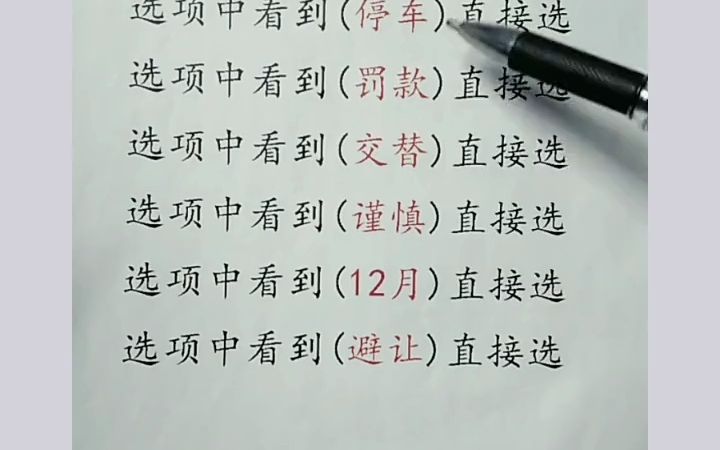 选项中看到(停车)直接选
选项中看到(罚款)直接选
选项中看到(交替)直接选
选项中看到(谨慎)直接选
选项中看到(12月)直接选
选项中看到(避让)直接选